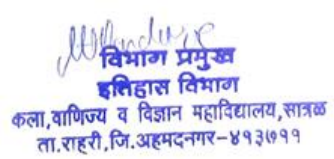 विभाग प्रमुख
इतिहास विभाग
कला,वाणिज्य व विज्ञान महाविद्यालय,सात्रळ
ता.राहूरी,जि.अहमदनगर-४१३७११